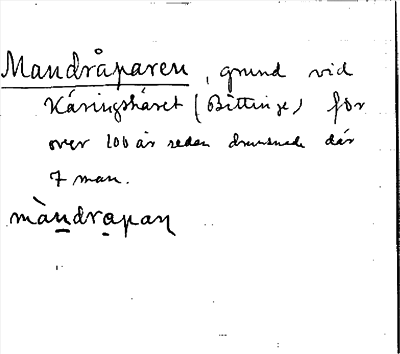 Mandråparen, grund vid
Käringskäret (Bittinge) för
over 100 år sedan drunknade där
7 man.
màndrapaṇ